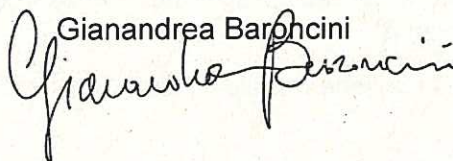 Gianandrea Baroncini
Gianandrea Baroncini